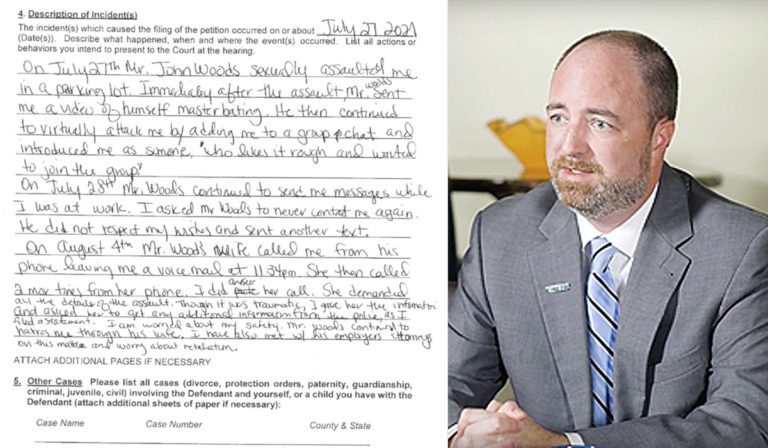 4. Description of Incident(s)
The incident(s) which caused the filing of the petition occurred on or about July 27 2021
(Date(s)). Describe what happened, when and where the event(s) occurred. List all actions or
behaviors you intend to present to the Court at the hearing.
On July 27th Mr. John Woods sexually assaulted me
in a parking lot. Immediately after the assault, Mr. Woods sent
me a video of himself masterbating. He then continued
to virtually attack me by adding me to a group chat and
introduced me as someone, "who likes it rough and wanted
to join the group"
On July 28th Mr. Woods continued to send me messages while
I was at work. I asked Mr Woods to never contact me again.
He did not respect my wishes and sent another text.
On August 4th Mr. Woods wife called me from his
phone leaving me a voicemail at 11:34pm. She then called
2 more times from her phone. I did answer her call. She demanded
all the details of the assault. Though it was traumatic, I gave her the information
and asked her to get any additional information from the police, as I
filed a statement. I am worried about my safety. Mr. Woods continued to
harass me through his wife. I have also met w/ his employers attorneys
on this matter and worry about retaliation.
ATTACH ADDITIONAL PAGES IF NECESSARY
5. Other Cases Please list all cases (divorce, protection orders, paternity, guardianship,
criminal, juvenile, civil) involving the Defendant and yourself, or a child you have with the
Defendant (attach additional sheets of paper if necessary):
Case Name Case Number County & State